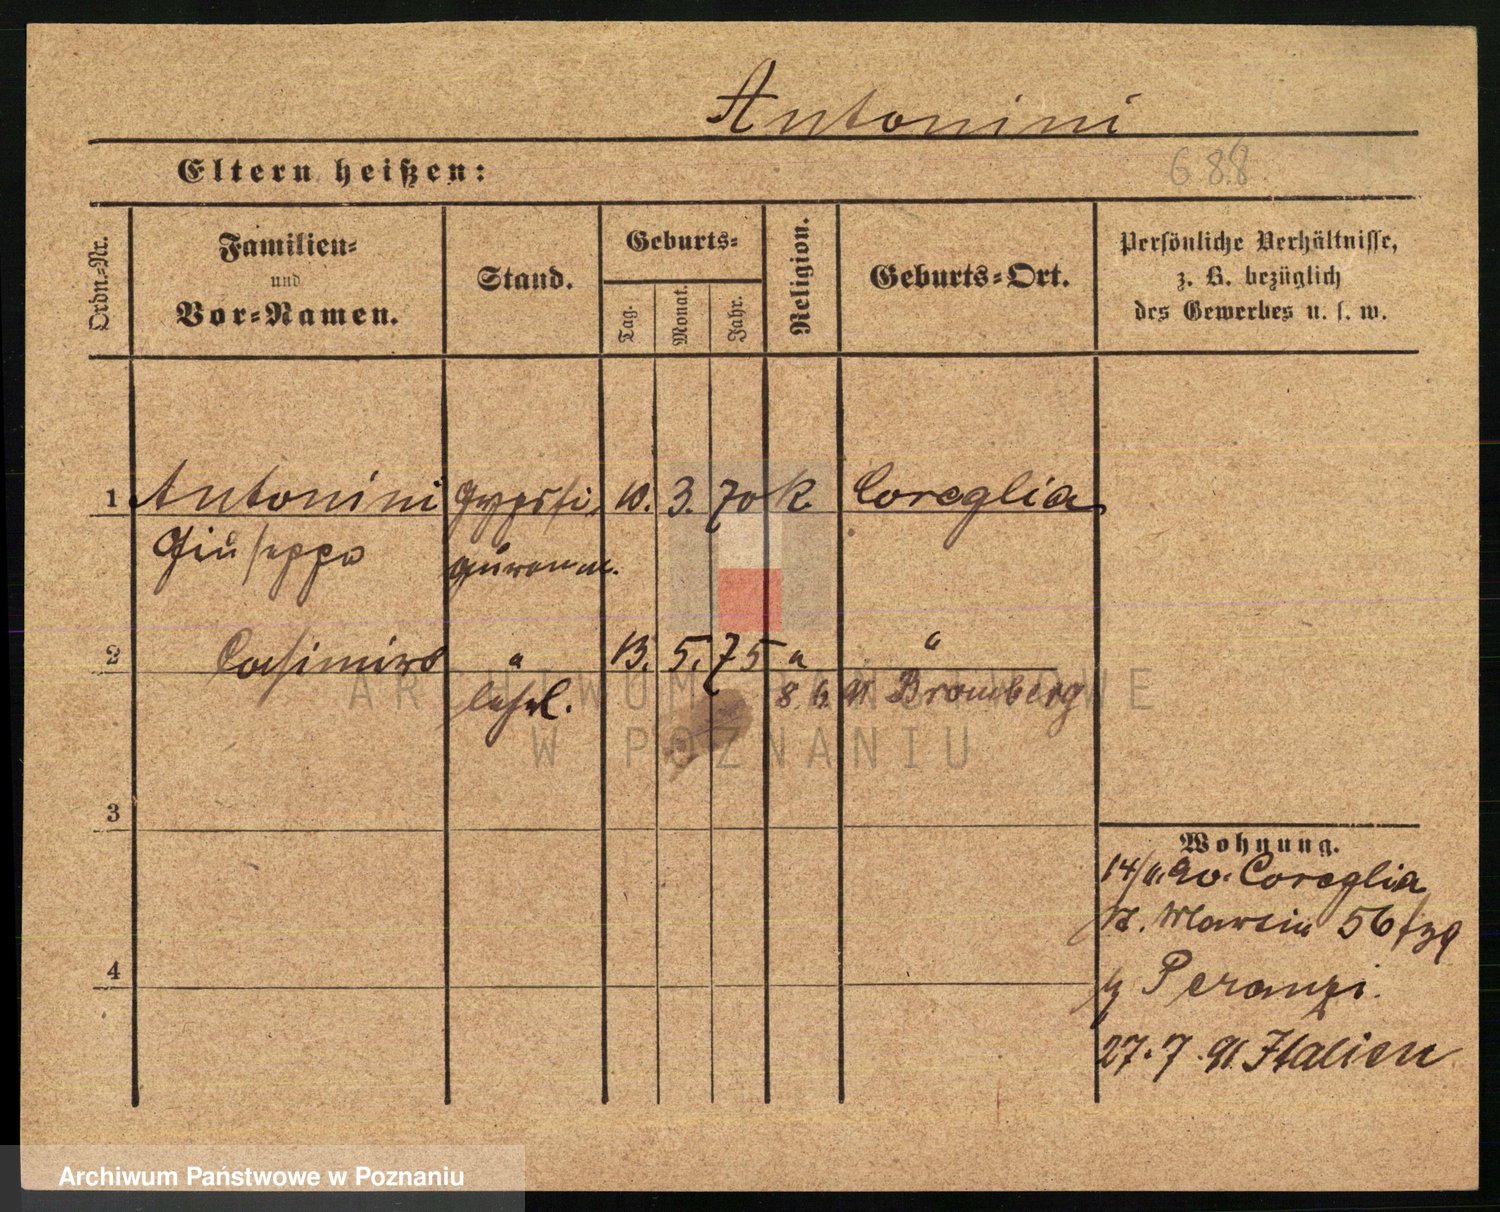 Antonini
Eltern heißen:
688
Ordn.=Nr.
Familien=
und
Vor=Namen.
Stand.
Geburts=
Tag.
Monat.
Jahr.
Religion.
Geburts=Ort.
Persönliche Verhältnisse,
z. B. bezüglich
des Gewerbes u. s. w.
1 Antonini Gypsfi 10. 3. 70 K. Coreglia
Giuseppo
2 Casimiro " 13. 5. 75 " "
lehrl. 8. 6. 91 Bromberg
3
4
Wohnung.
14/11. 90. Coreglia
St. Martin 56
Peranzi.
27. 7. 91. Italien
ARCHIWUM PAŃSTWOWE
W POZNANIU
Archiwum Państwowe w Poznaniu